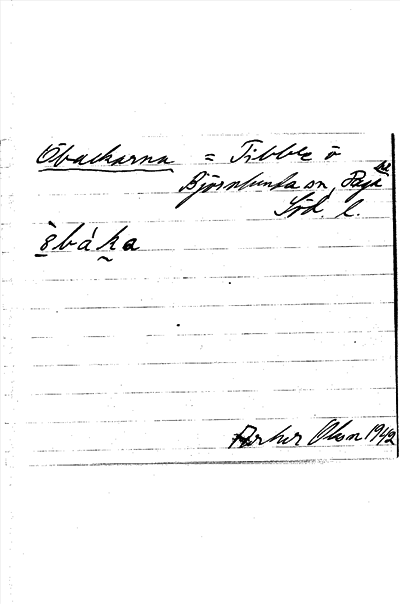 Öbackarna = Tibble ö
Björnlunda sn, Daga hd
Söd. l.
öbáka
Olson 1942